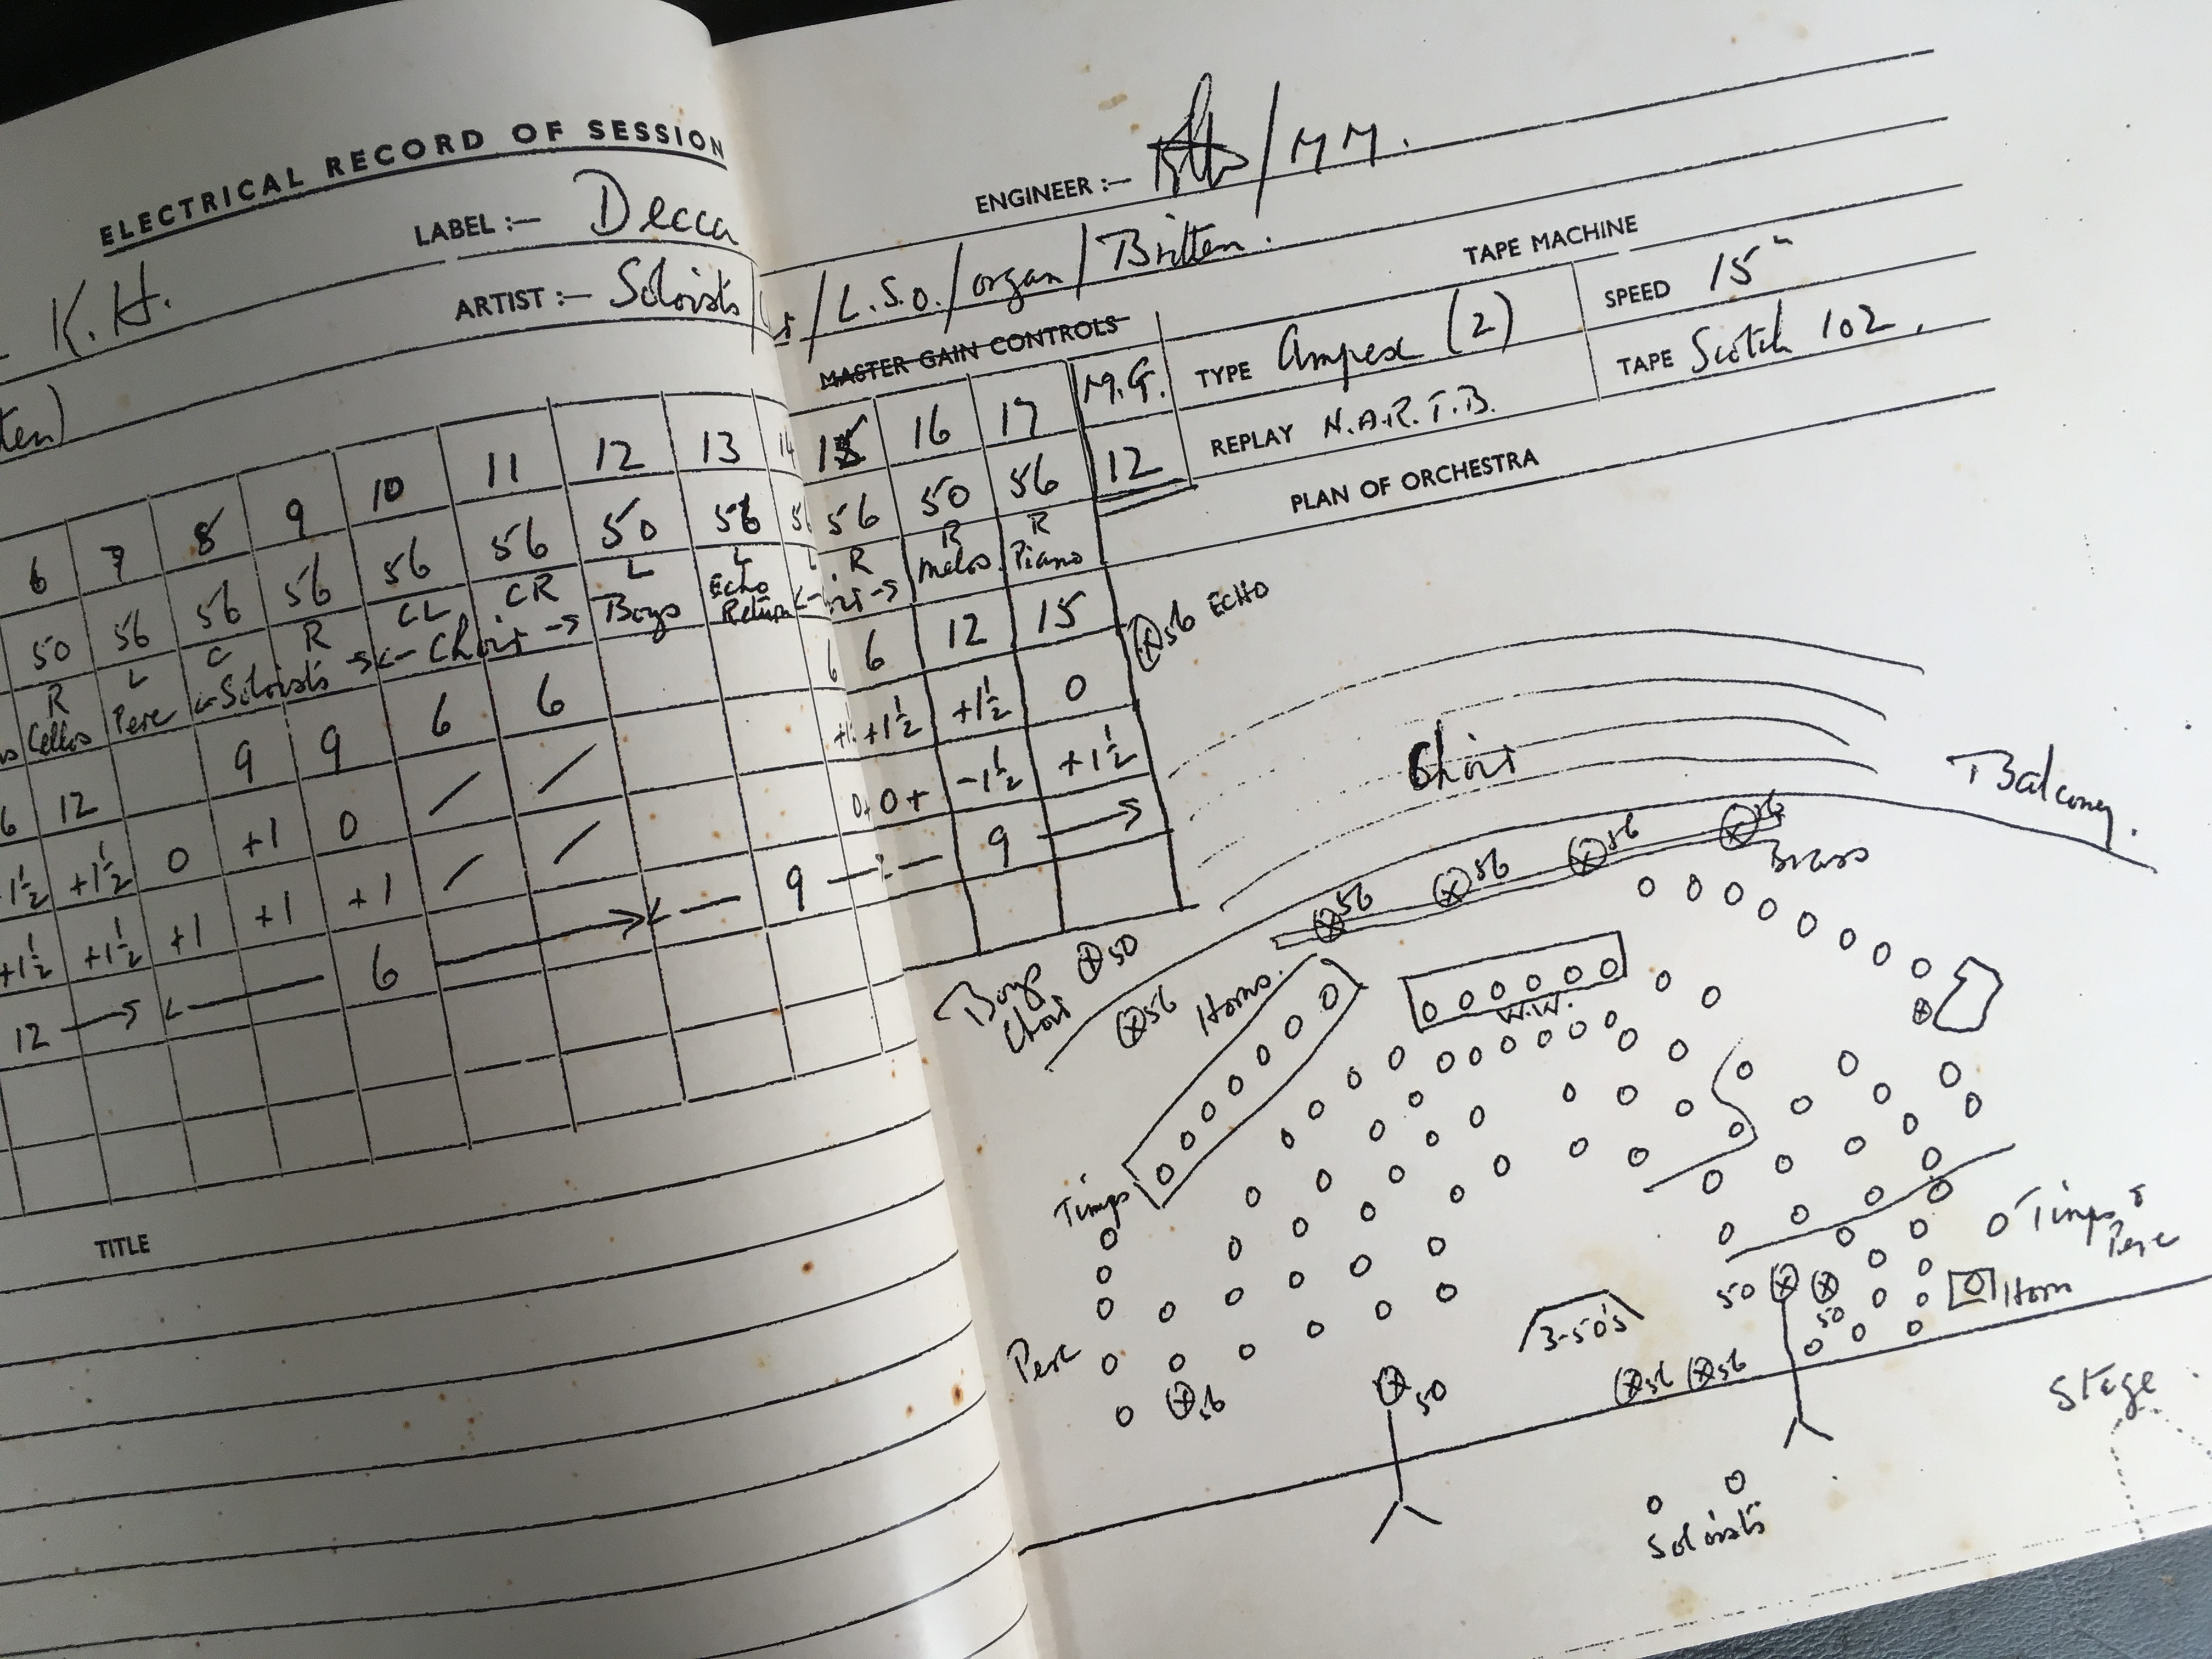 ELECTRICAL RECORD OF SESSION
K.H.
LABEL :— Decca
ARTIST :— Soloists
6 7 8 9 10 11 12 13 14
50 56 56 56 56 56 50 56
R L C R CL CR L L
Cellos Perc ←Soloists→ ←Choir→ Boys Echo Return
6 12 9 9 6 6
1½ +1½ 0 +1 0 / /
+1½ +1½ +1 +1 +1 / /
12 → ← 6 → ← 9
TITLE
ENGINEER :— / MM.
/ L.S.O. / organ / Britten.
MASTER GAIN CONTROLS
TAPE MACHINE
15 16 17 M.G.
56 50 56 12
R R R
Melos. Piano
6 6 12 15
+1½ +1½ 0
0+ -1½ +1½
9 →
TYPE Ampex (2)
SPEED 15"
REPLAY N.A.R.T.B.
TAPE Scotch 102.
PLAN OF ORCHESTRA
56 ECHO
Choir
Balcony.
56 56 56 56
Brass
Boys Choir 50
56 Horns.
W.W.
Timps
Timps & Perc
Perc
50 50
Horn
3-50's
56 50 56 56
Stage
Soloists